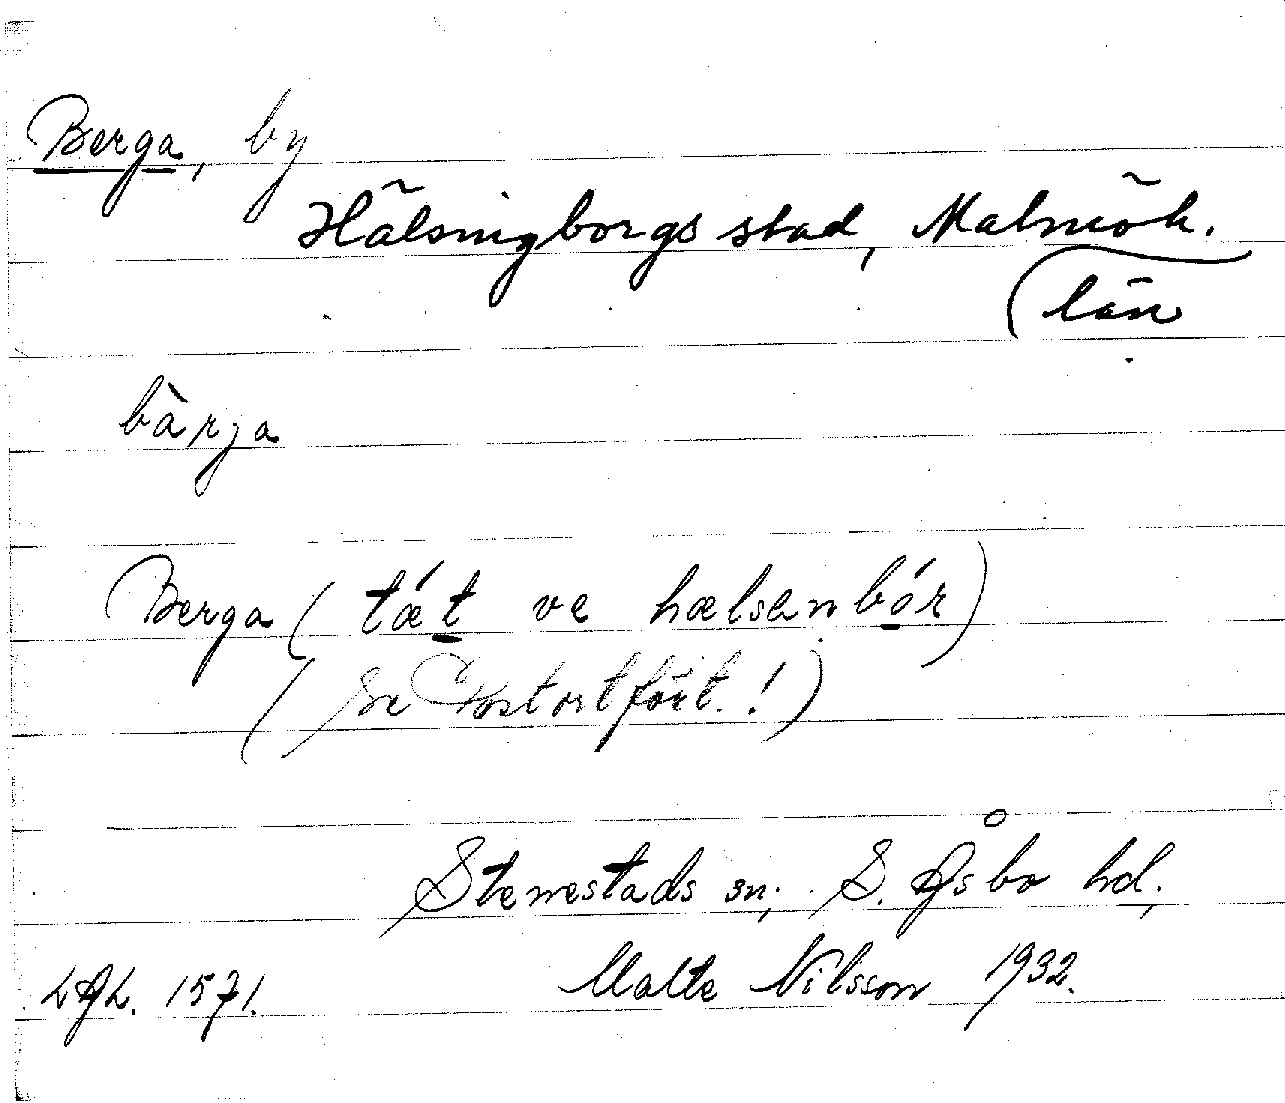 Berga, by
Hälsingborgs stad, Malmöh.
(län
bàrja
Berga (tǽt ve hælsenbór)
(se Postortfört.!)
Stenestads sn; S. Åsbo hd,
LAL. 1571. Malte Nilsson 1932.